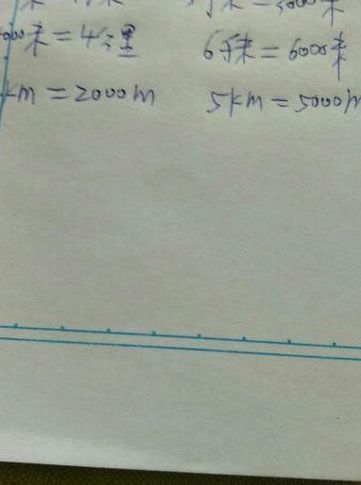 000米=4公里 6千米=6000米
km=2000m 5km=5000m